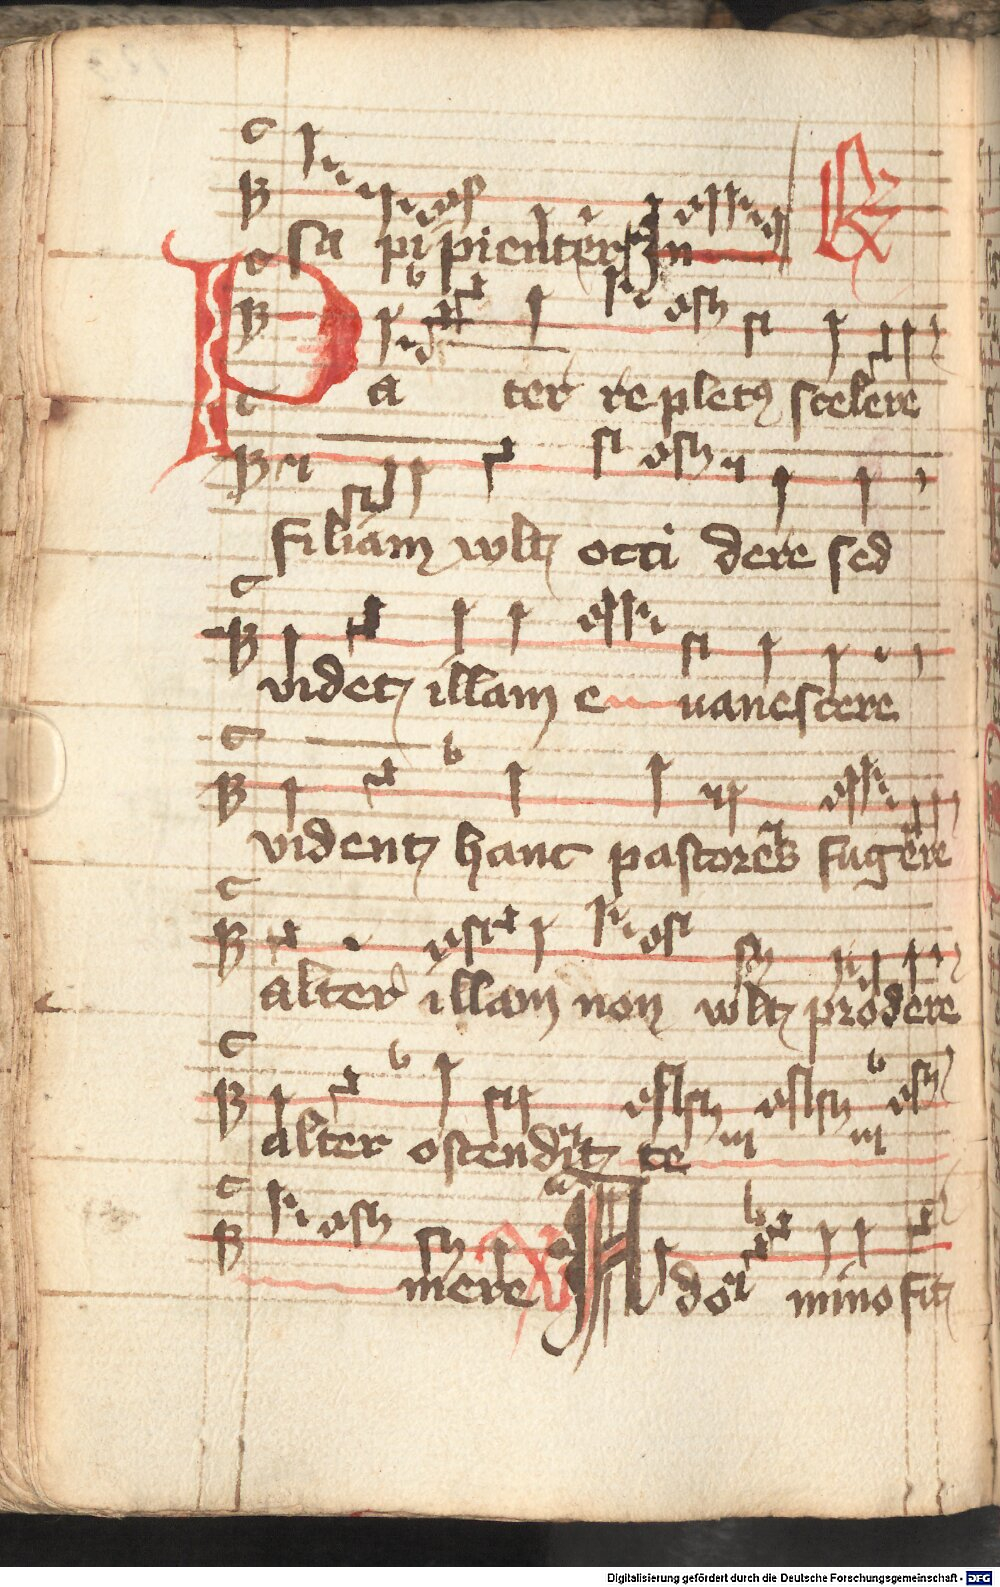 sa pi pienter In
Pa ter replet9 scelere
filiam wlt occi dere sed
videt illam e uanescere
vident hanc pastores fugere
alter illam non wlt prodere
alter ostendit te
mere A do mino fit
Digitalisierung gefördert durch die Deutsche Forschungsgemeinschaft - DFG